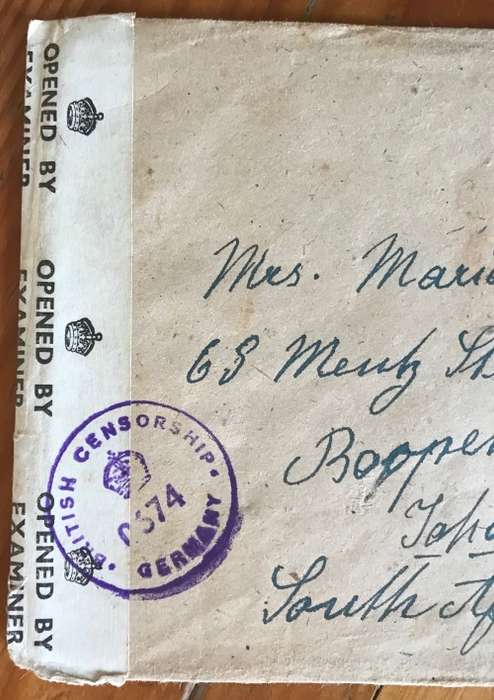 OPENED BY
EXAMINER
OPENED BY
EXAMINER
OPENED BY
EXAMINER
BRITISH CENSORSHIP
GERMANY
Mrs. Mari
Mentz St
Booysen
Joha
South Af